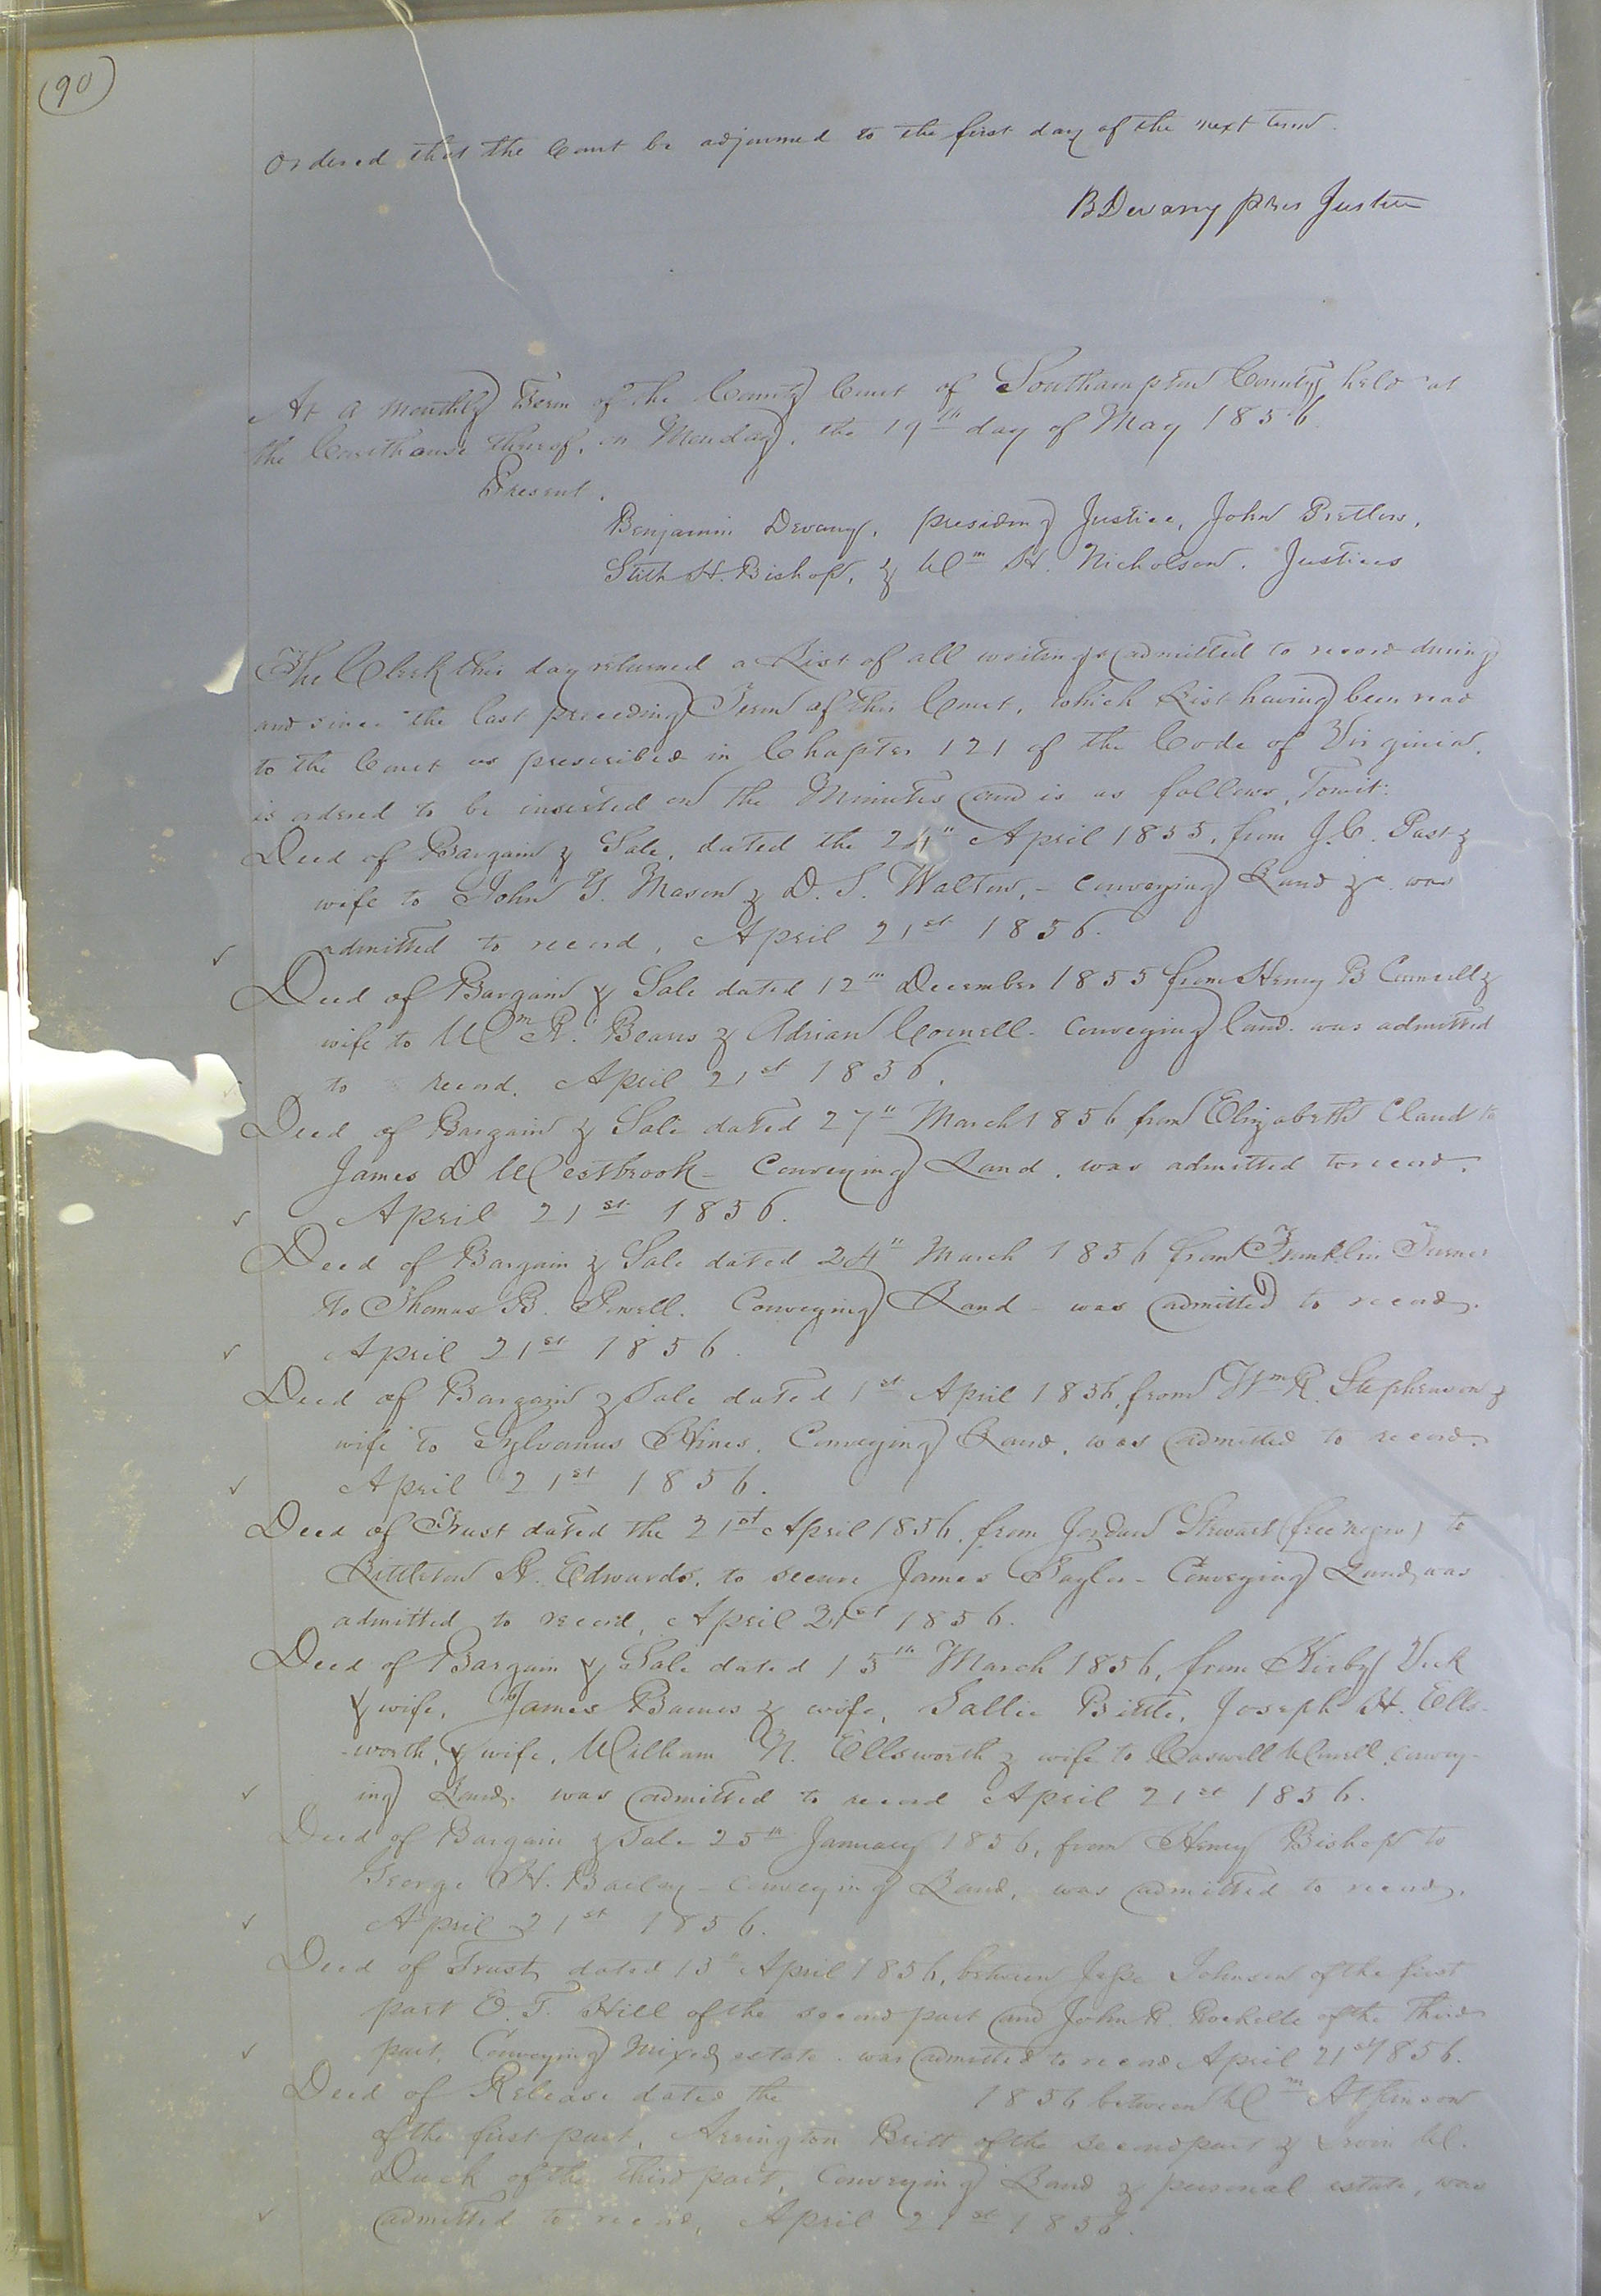 (90)
Ordered that the Court be adjourned to the first day of the next term.
B Devany Pres Justice
At a Monthly Term of the County Court of Southampton County, held at
the Courthouse thereof, on Monday, the 19th day of May 1856.
Present,
Benjamin Devany, presiding Justice, John Pretlow,
Stith H. Bishop, & Wm H. Nicholson, Justices
The Clerk this day returned a List of all writings admitted to record during
and since the last preceding Term of this Court, which List having been read
to the Court as prescribed in Chapter 121 of the Code of Virginia,
is ordered to be inserted on the Minutes and is as follows, Towit:
Deed of Bargain & Sale, dated the 24" April 1855, from J. C. &
wife to John Y. Mason & D. S. Walton, - Conveying Land &c was
admitted to record, April 21st 1856.
Deed of Bargain & Sale dated 12th December 1855 from Henry B &
wife to Wm R. Beans & Adrian Cornell - Conveying land. was admitted
to record. April 21st 1856.
Deed of Bargain & Sale dated 27" March 1856 from Elizabeth Claud to
James D Westbrook - Conveying Land. was admitted to record.
April 21st 1856.
Deed of Bargain & Sale dated 24" March 1856 from Franklin Turner
to Thomas B. Conveying Land - was admitted to record.
April 21st 1856.
Deed of Bargain & Sale dated 1st April 1856, from Wm R. Stephenson &
wife to Sylvanus Hines. Conveying Land, was admitted to record.
April 21st 1856.
Deed of Trust dated the 21st April 1856, from Jordan Stewart (free negro) to
Littleton R. Edwards, to secure James Taylor - Conveying Land, was
admitted to record, April 21st 1856.
Deed of Bargain & Sale dated 15th March 1856, from Kirby Vick
& wife, James Barnes & wife, Sallie Bittle, Joseph H. Ells-
-worth, & wife, William N. Ellsworth & wife to Caswell convey-
ing Land. was admitted to record April 21st 1856.
Deed of Bargain & Sale 25th January 1856, from Henry Bishop to
George H. Bailey - Conveying Land, was admitted to record,
April 21st 1856.
Deed of Trust, dated 15" April 1856, between Jesse Johnson of the first
part E. T. Hill of the second part and John R. Rochelle of the third
part, Conveying Mixed estate. was admitted to record April 21st 1856.
Deed of Release dated the 1856 between Wm Atkinson
of the first part, Arrington Britt of the second part & W.
Duck of the third part, Conveying Land & personal estate, was
admitted to record, April 21st 1856.